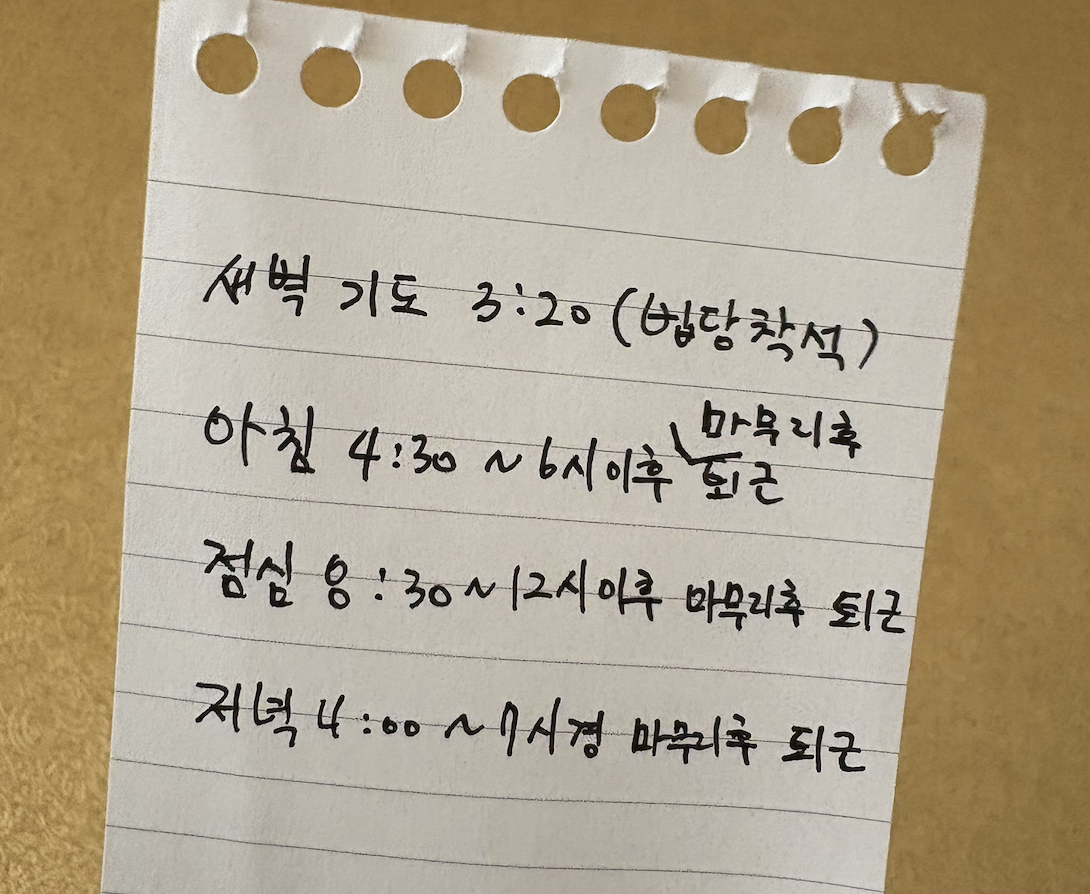 새벽 기도 3:20 (법당착석)
아침 4:30 ~ 6시이후 마무리후
퇴근
점심 8:30 ~ 12시이후 마무리후 퇴근
저녁 4:00 ~ 7시경 마무리후 퇴근